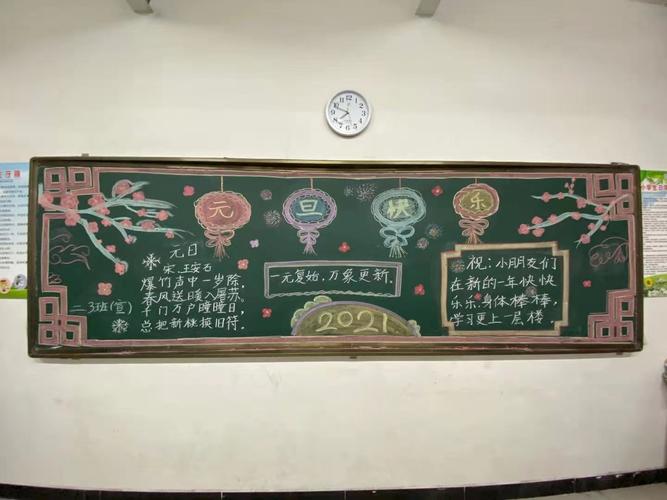 元旦快乐
元日
宋 王安石
爆竹声中一岁除,
春风送暖入屠苏。
千门万户曈曈日,
总把新桃换旧符。
二.3班(宣)
一元复始,万象更新.
2021
祝:小朋友们
在新的一年快快
乐乐,身体棒棒,
学习更上一层楼.